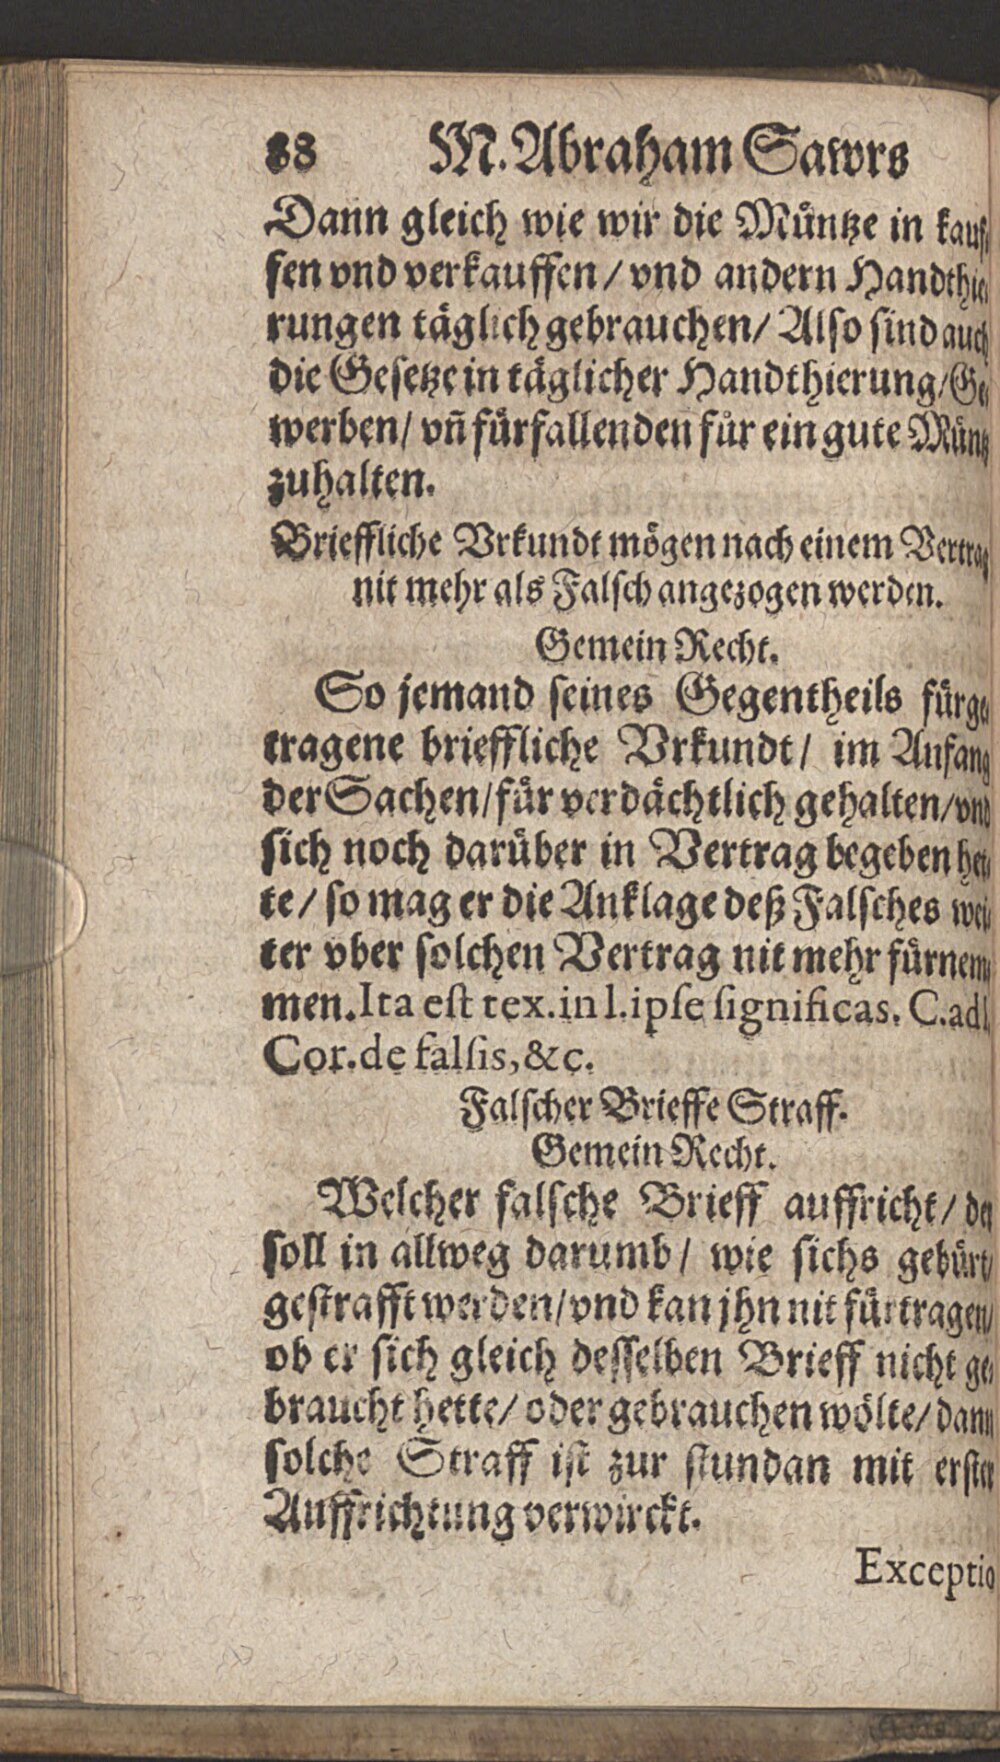 88 M. Abraham Sawrs
Dann gleich wie wir die Müntze in kauf-
fen vnd verkauffen / vnd andern Handthie-
rungen täglich gebrauchen / Also sind auch
die Gesetze in täglicher Handthierung / Ge-
werben / vñ fürfallenden für ein gute Müntz
zuhalten.
Brieffliche Vrkundt mögen nach einem Vertrag
nit mehr als Falsch angezogen werden.
Gemein Recht.
So jemand seines Gegentheils fürge-
tragene brieffliche Vrkundt / im Anfang
der Sachen / für verdächtlich gehalten / vnd
sich noch darüber in Vertrag begeben het-
te / so mag er die Anklage deß Falsches wei-
ter vber solchen Vertrag nit mehr fürnem-
men. Ita est tex. in l. ipse significas. C. ad l.
Cor. de falsis, &c.
Falscher Brieffe Straff.
Gemein Recht.
Welcher falsche Brieff auffricht / der
soll in allweg darumb / wie sichs gebürt /
gestrafft werden / vnd kan jhn nit fürtragen /
ob er sich gleich desselben Brieff nicht ge-
braucht hette / oder gebrauchen wölte / dann
solche Straff ist zur stundan mit erster
Auffrichtung verwirckt.
Exceptio